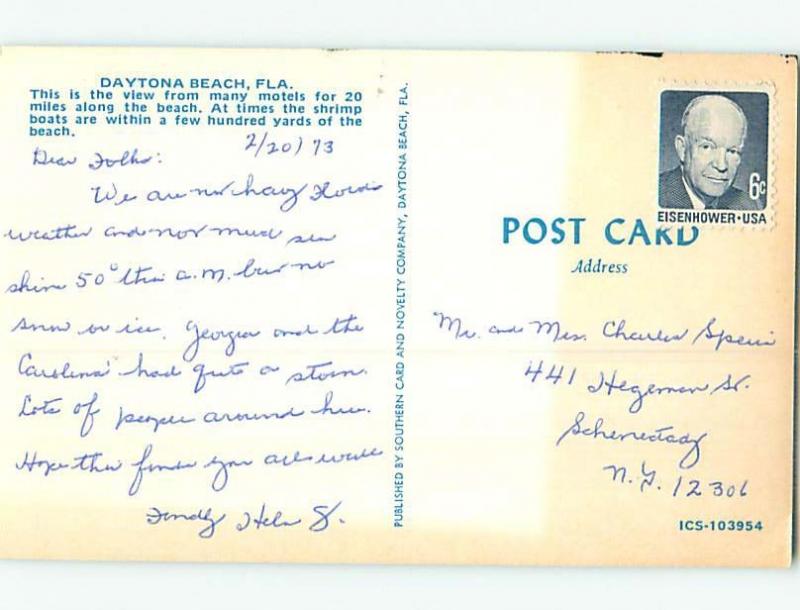 DAYTONA BEACH, FLA.
This is the view from many motels for 20
miles along the beach. At times the shrimp
boats are within a few hundred yards of the
beach.
2/20/73
Dear Folks:
We are not having Florida
weather and not much sun
shine 50° this a.m. but no
snow or ice. Georgia and the
Carolina's had quite a storm.
Lots of people around here.
Hope this finds you all well
Fondly Helen G.
PUBLISHED BY SOUTHERN CARD AND NOVELTY COMPANY, DAYTONA BEACH, FLA.
6c
EISENHOWER·USA
POST CARD
Address
Mr. and Mrs. Charles
441 Hegeman St.
Schenectady
N.Y. 12306
ICS-103954